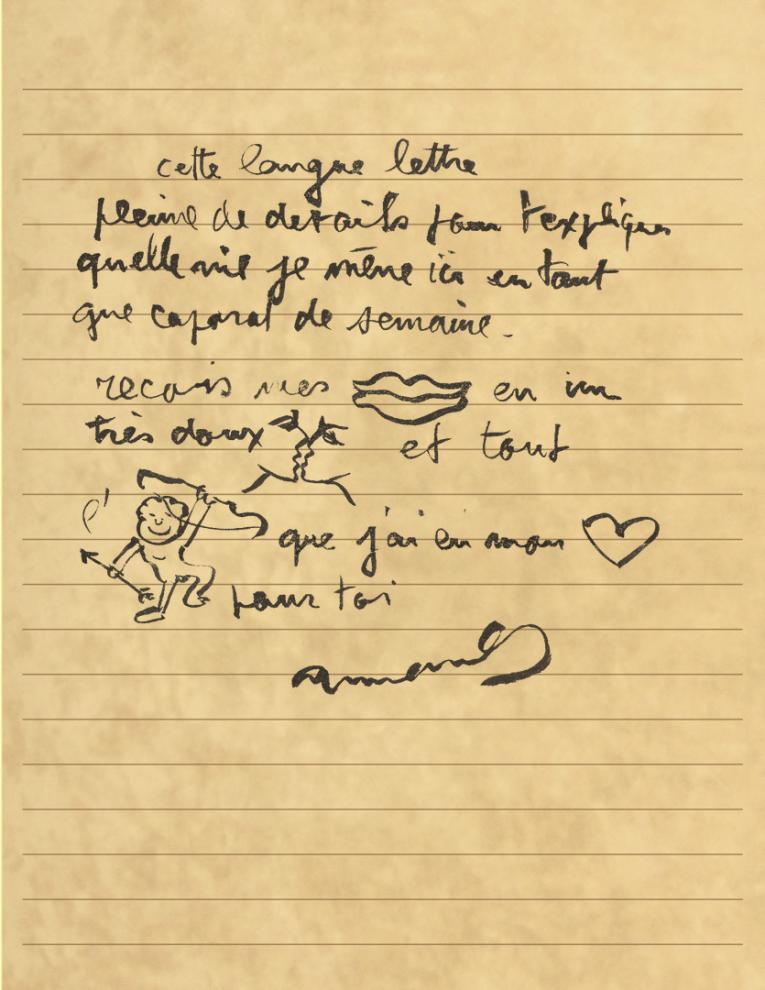 cette longue lettre
pleine de details pour t'expliquer
quelle vie je mène ici en tant
que caporal de semaine.
recois mes en un
très doux et tout
l'
que j'ai en mon
pour toi
Armand